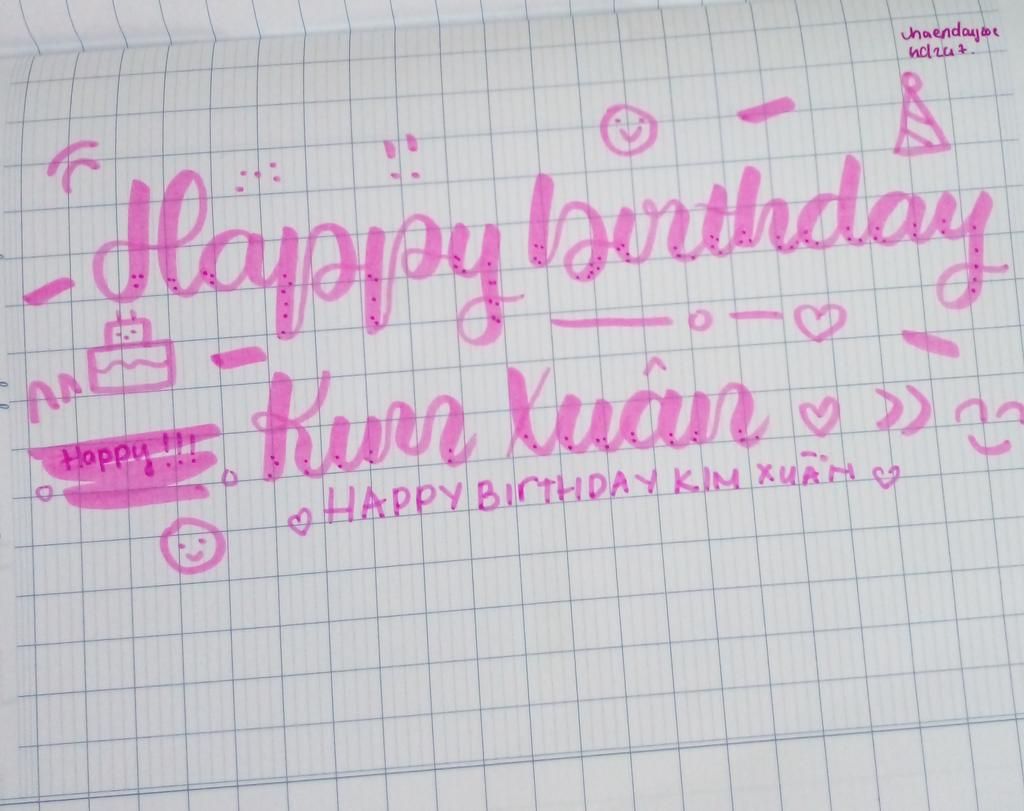 Happy birthday
Kim Xuân
Happy!!!
HAPPY BIRTHDAY KIM XUÂN